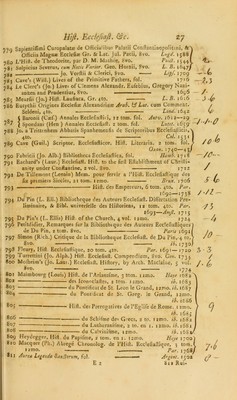 Hist. Ecclesiast. &c. 27
779 Sapientissimi Curapalatæ de Officialibus Palatii Constantinopolitani, &
Officiis Magnæ Ecclesiæ Gr. & Lat. Jul. Pacii, 8vo. Lugd. 1588
780 L'Hist. de Theodorite, par D. M. Mathée, 8vo. Poict. 1544
781 Sulpicius Severus, cum Notis Varior. Geo. Hornii, 8vo. L. B. 1647
782 Jo. Vorstii & Clerici, 8vo. Lips. 1709
783 Cave's (Will.) Lives of the Primitive Fathers, fol. 1716
784 Le Clerc's (Jo.) Lives of Clemens Alexandr. Eusebius, Gregory Nazianzen
and Prudentius, 8vo. 1696
785 Meursii (Jo.) Hist. Laudiaca. Gr. 4to. L. B. 1616
786 Eutychii Origines Ecclesiæ Alexandrinæ Arab. & Lat. cum Comment.
Seldeni, 4to. Lond. 1642
787 Baronii (Cæs.) Annales Ecclesiastici, 12 tom. fol. Antv. 1612—19
Spondani (Hen.) Annales Ecclesiast. 2 tom. fol. Lutet. 1659
788 Jo. a Trittenhem Abbatis Spanhemensis de Scriptoribus Ecclesiasticis,
4to. Col. 1531
789 Cave (Guil.) Scriptor. Ecclesiasticor. Hist. Literaria, 2 tom. fol.
Oxon. 1740—43
790 Fabricii (Jo. Alb.) Bibliotheca Ecclesiastica, fol. Hamb. 1718
791 Eachard's (Laur.) Ecclesiast. Hist. to the first Establishment of Christianity
under Constantine, 2 vol. 8vo. 1722
792 De Tillemont (Lenain) Mem. pour servir a l'Hist. Ecclesiastique des
six premiers siecles, 22 tom. 12mo. Brux. 1706
793 Hist. des Empereurs, 6 tom. 4to. Par.
1690—1738
794 Du Pin (L. Ell.) Bibliotheque des Auteurs Ecclesiast. Dissertation Preliminaire,
& Bibl. universelle des Historiens, 12 tom. 4to. Par.
1693—Amst. 1715
795 Du Pin's (L. Ellis) Hist. of the Church, 4 vol. 12mo. 1724
796 Petitdidier, Remarques sur la Bibliotheque des Auteurs Ecclesiastiques
de Du Pin, 2 tom. 8vo. Paris 1691
797 Simon (Rich.) Critique de la Bibliotheque Ecclesiast. de Du Pin, 4 tom. 8vo.
ib. 1730
798 Fleury, Hist. Ecclesiastique, 20 tom. 4to. Par. 1691—1720
799 Turretini (Jo. Alph.) Hist. Ecclesiast. Compendium, 8vo. Gen. 1735
800 Mosheim's (Jo. Laur.) Ecclesiast. History, by Arch. Maclaine, 5 vol.
8vo. 1774
801 Maimbourg (Louis) Hist. de l'Arianisme, 3 tom. 12mo. Haye 1682
802 des Iconoclastes, 2 tom. 12mo. ib. 1683
803 du Pontificat de St. Leon le Grand, 12mo. ib. 1687
804 du Pontificat de St. Greg. le Grand, 12mo.
ib. 1686
805 Hist. des Prerogatives de l'Eglise de Rome. 12mo.
ib. 1685
806 du Schisme des Grecs, 2 to. 12mo. ib. 1682
807 du Lutheranisme, 2 to. en 1. 12mo. ib. 1681
808 du Calvinisme, 12mo. ib. 1682
809 Heydegger, Hist. du Papisme, 2 tom. en 1. 12mo Haye 1702
810 Macquer (Ph.) Abregé Chronolog. de l'Hist. Ecclesiastique, 3 tom.
12mo. Par. 1768
811 Aurea Legenda Sanctorum, fol. Argent. 1502
E 2 812 Rai-